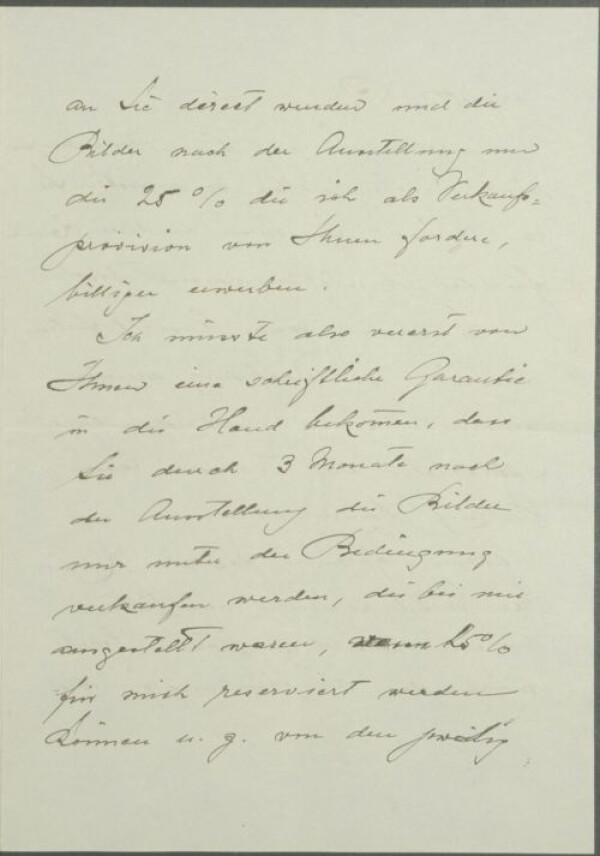 an Sie direct wenden und die
Bilder nach der Ausstellung um
die 25 % die ich als Verkaufs-
provision von Ihnen fordere,
billiger erwerben.
Ich müsste also vorerst von
Ihnen eine schriftliche Garantie
in die Hand bekom̅en, dass
Sie durch 3 Monate nach
der Ausstellung die Bilder
nur unter der Bedingung
verkaufen werden, die bei mir
ausgestellt waren, wenn 25%
für mich reserviert werden
können u. z. von den jeweilig